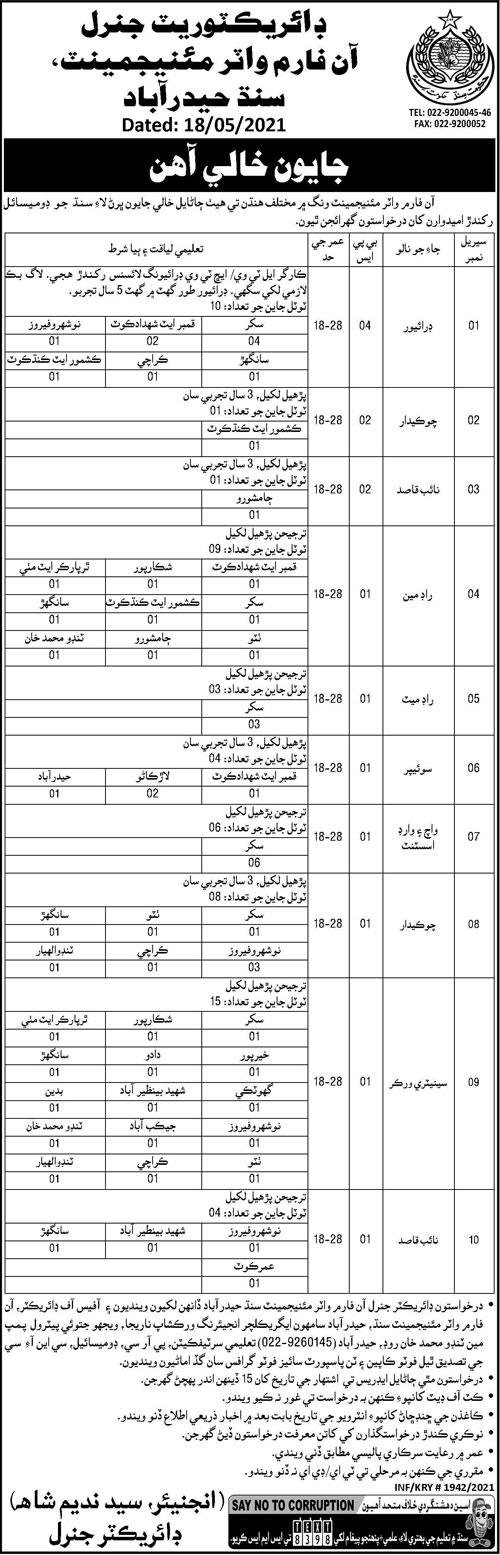 ڊائريڪٽوريٽ جنرل
آن فارم واٽر مئنيجمينٽ،
سنڌ حيدرآباد
Dated: 18/05/2021
TEL: 022-9200045-46
FAX: 022-9200052
جايون خالي آهن
آن فارم واٽر مئنيجمينٽ ونگ ۾ مختلف هنڌن تي هيٺ ڄاڻايل خالي جايون ڀرڻ لاءِ سنڌ جو ڊوميسائل
رکندڙ اميدوارن کان درخواستون گهرائجن ٿيون.
سيريل نمبر | جاءِ جو نالو | بي پي ايس | عمر جي حد | تعليمي لياقت ۽ ٻيا شرط
01 | ڊرائيور | 04 | 18-28
ڪارگر ايل ٽي وي/ ايڇ ٽي وي ڊرائيونگ لائسنس رکندڙ هجي. لاگ بڪ
لازمي لکي سگهي. ڊرائيور طور گهٽ ۾ گهٽ 5 سال تجربو.
ٽوٽل جاين جو تعداد: 10
سکر | قمبر ايٽ شهدادڪوٽ | نوشهروفيروز
04 | 02 | 01
سانگهڙ | ڪراچي | ڪشمور ايٽ ڪنڌڪوٽ
01 | 01 | 01
02 | چوڪيدار | 02 | 18-28
پڙهيل لکيل، 3 سال تجربي سان
ٽوٽل جاين جو تعداد: 01
ڪشمور ايٽ ڪنڌڪوٽ
01
03 | نائب قاصد | 02 | 18-28
پڙهيل لکيل، 3 سال تجربي سان
ٽوٽل جاين جو تعداد: 01
ڄامشورو
01
04 | راڊ مين | 01 | 18-28
ترجيحن پڙهيل لکيل
ٽوٽل جاين جو تعداد: 09
قمبر ايٽ شهدادڪوٽ | شڪارپور | ٿرپارڪر ايٽ مٺي
01 | 01 | 01
سکر | ڪشمور ايٽ ڪنڌڪوٽ | سانگهڙ
01 | 01 | 01
ٺٽو | ڄامشورو | ٽنڊو محمد خان
01 | 01 | 01
05 | راڊ ميٽ | 01 | 18-28
ترجيحن پڙهيل لکيل
ٽوٽل جاين جو تعداد: 03
سکر
03
06 | سوئيپر | 01 | 18-28
پڙهيل لکيل، 3 سال تجربي سان
ٽوٽل جاين جو تعداد: 04
قمبر ايٽ شهدادڪوٽ | لاڙڪاڻو | حيدرآباد
01 | 02 | 01
07 | واچ ۽ وارڊ اسسٽنٽ | 01 | 18-28
ترجيحن پڙهيل لکيل
ٽوٽل جاين جو تعداد: 06
سکر
06
08 | چوڪيدار | 01 | 18-28
پڙهيل لکيل، 3 سال تجربي سان
ٽوٽل جاين جو تعداد: 08
سکر | ٺٽو | سانگهڙ
01 | 01 | 01
نوشهروفيروز | ڪراچي | ٽنڊوالهيار
03 | 01 | 01
09 | سينيٽري ورڪر | 01 | 18-28
ترجيحن پڙهيل لکيل
ٽوٽل جاين جو تعداد: 15
سکر | شڪارپور | ٿرپارڪر ايٽ مٺي
01 | 01 | 01
خيرپور | دادو | سانگهڙ
01 | 01 | 01
گهوٽڪي | شهيد بينظير آباد | بدين
01 | 01 | 01
نوشهروفيروز | جيڪب آباد | ٽنڊو محمد خان
01 | 01 | 01
ٺٽو | ڪراچي | ٽنڊوالهيار
01 | 01 | 01
10 | نائب قاصد | 01 | 18-28
ترجيحن پڙهيل لکيل
ٽوٽل جاين جو تعداد: 04
نوشهروفيروز | شهيد بينظير آباد | سانگهڙ
01 | 01 | 01
عمرڪوٽ
01
• درخواستون ڊائريڪٽر جنرل آن فارم واٽر مئنيجمينٽ سنڌ حيدرآباد ڏانهن لکيون وينديون ۽ آفيس آف ڊائريڪٽر، آن
فارم واٽر مئنيجمينٽ سنڌ، حيدرآباد سامهون ايگريڪلچر انجنيئرنگ ورڪشاپ ناريجا، ويجهو جتوئي پيٽرول پمپ
مين ٽنڊو محمد خان روڊ، حيدرآباد (022-9260145) تعليمي سرٽيفڪيٽن، پي آر سي، ڊوميسائيل، سي اين آءِ سي
جي تصديق ٿيل فوٽو ڪاپين ۽ ٽن پاسپورٽ سائيز فوٽو گرافس سان گڏ اماڻيون وينديون.
• درخواستون مٿي ڄاڻايل ايڊريس تي اشتهار جي تاريخ کان 15 ڏينهن اندر پهچڻ گهرجن.
• ڪٽ آف ڊيٽ کانپوءِ ڪنهن به درخواست تي غور نه ڪيو ويندو.
• ڪاغذن جي ڇنڊڇاڻ کانپوءِ انٽرويو جي تاريخ بابت بعد ۾ اخبار ذريعي اطلاع ڏنو ويندو.
• نوڪري ڪندڙ درخواستگذارن کي کاتن معرفت درخواستون ڏيڻ گهرجن.
• عمر ۾ رعايت سرڪاري پاليسي مطابق ڏني ويندي.
• مقرري جي ڪنهن به مرحلي تي ٽي اي/ ڊي اي نه ڏنو ويندو.
INF/KRY # 1942/2021
(انجنيئر، سيد نديم شاهه)
ڊائريڪٽر جنرل
SAY NO TO CORRUPTION
اسين دهشتگردي خلاف متحد آهيون
سنڌ ۾ تعليم جي بهتري لاءِ علمي ۽ پنهنجو پيغام لکي TEXT 8398 تي ايس ايم ايس ڪريو.